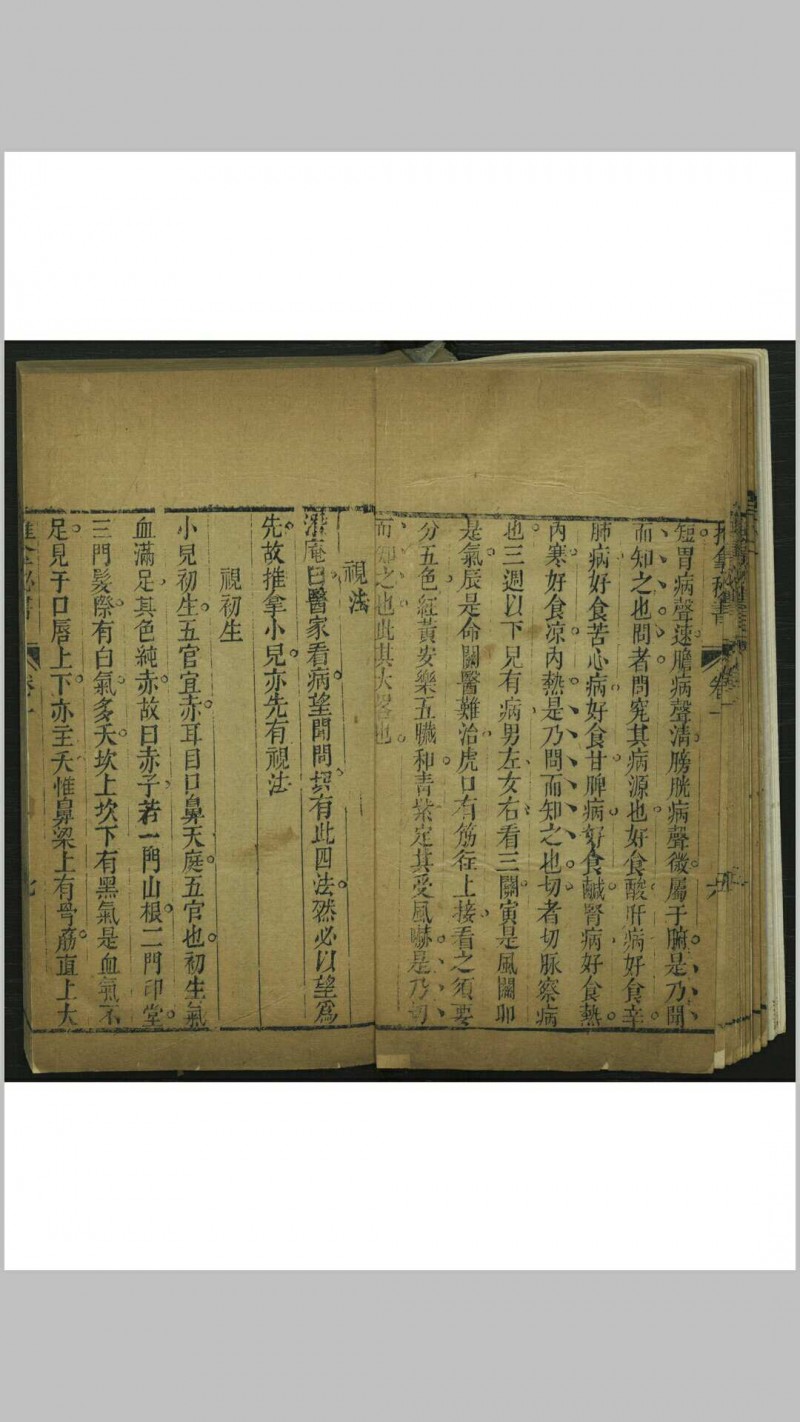 推拿秘書
卷一
短胃病聲速膽病聲清膀胱病聲微屬于腑是乃聞
而知之也問者問究其病源也好食酸肝病好食辛
肺病好食苦心病好食甘脾病好食鹹腎病好食熱
內寒好食涼內熱是乃問而知之也切者切脉察病
也三週以下兒有病男左女右看三關寅是風關卯
是氣辰是命關醫難治虎口有筋往上接看之須要
分五色紅黃安樂五臟和青紫定其受風嚇是乃切
而知之也此其大畧也
視法
潛庵曰醫家看病望聞問切有此四法然必以望爲
先故推拿小兒亦先有視法
視初生
小兒初生五官宜赤耳目口鼻天庭五官也初生氣
血滿足其色純赤故曰赤子若一門山根二門印堂
三門髮際有白氣多夭坎上坎下有黑氣是血氣不
足見于口唇上下亦主夭惟鼻梁上有青筋直上大